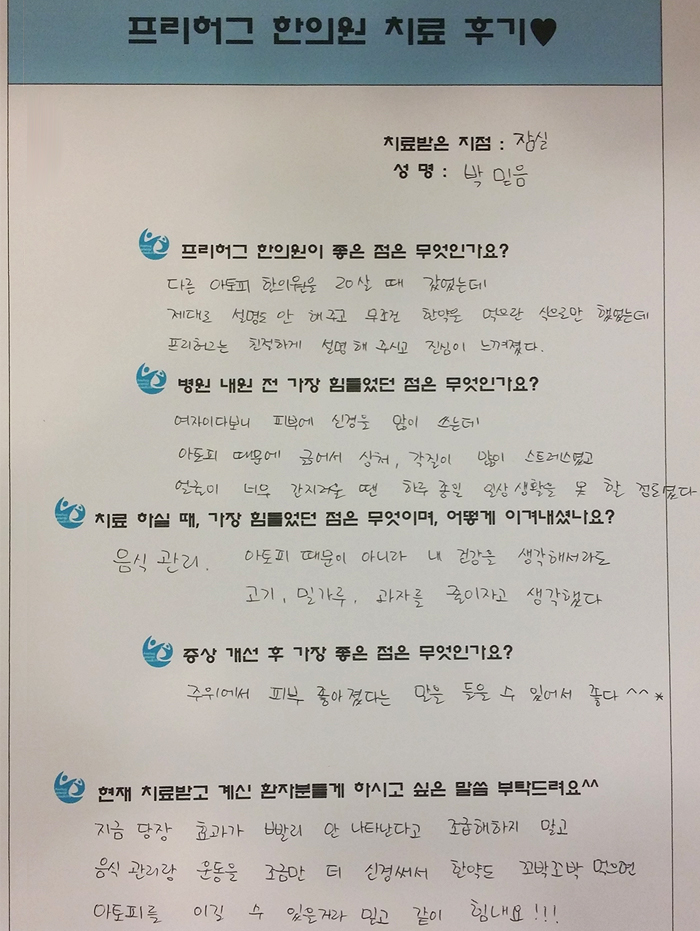 프리허그 한의원 치료 후기♥
치료받은 지점 : 잠실
성 명 : 박 믿음
프리허그 한의원이 좋은 점은 무엇인가요?
다른 아토피 한의원을 20살 때 갔었는데
제대로 설명도 안 해주고 무조건 한약을 먹으란 식으로만 했었는데
프리허그는 친절하게 설명 해 주시고 진심이 느껴졌다.
병원 내원 전 가장 힘들었던 점은 무엇인가요?
여자이다보니 피부에 신경을 많이 쓰는데
아토피 때문에 긁어서 상처, 각질이 많이 스트레스였고
얼굴이 너무 간지러울 땐 하루 종일 일상생활을 못 할 정도였다
치료 하실 때, 가장 힘들었던 점은 무엇이며, 어떻게 이겨내셨나요?
음식 관리. 아토피 때문이 아니라 내 건강을 생각해서라도
고기, 밀가루, 과자를 줄이자고 생각했다
증상 개선 후 가장 좋은 점은 무엇인가요?
주위에서 피부 좋아졌다는 말을 들을 수 있어서 좋다 ^^*
현재 치료받고 계신 환자분들게 하시고 싶은 말씀 부탁드려요^^
지금 당장 효과가 빨리 안 나타난다고 조급해하지 말고
음식 관리랑 운동을 조금만 더 신경써서 한약도 꼬박꼬박 먹으면
아토피를 이길 수 있을거라 믿고 같이 힘내요!!!